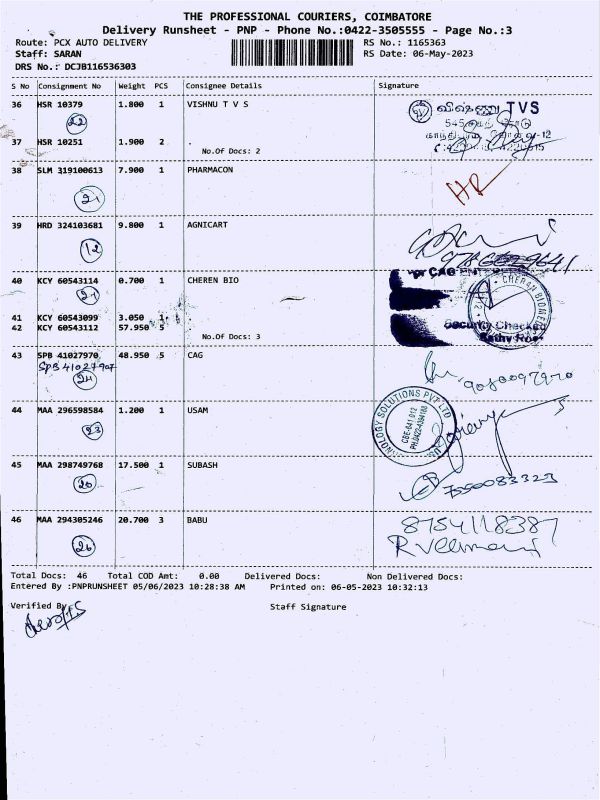 THE PROFESSIONAL COURIERS, COIMBATORE
Delivery Runsheet - PNP - Phone No.:0422-3505555 - Page No.:3
Route: PCX AUTO DELIVERY RS No.: 1165363
Staff: SARAN RS Date: 06-May-2023
DRS No.: DCJB116536303
S No Consignment No Weight PCS Consignee Details Signature
36 HSR 10379 1.800 1 VISHNU T V S
22
விஷ்ணு TVS
37 HSR 10251 1.900 2 .
No.Of Docs: 2
38 SLM 319100613 7.900 1 PHARMACON
21
HR
39 HRD 324103681 9.800 1 AGNICART
12
40 KCY 60543114 0.700 1 CHEREN BIO
21
41 KCY 60543099 3.050 1
42 KCY 60543112 57.950 5
No.Of Docs: 3
Security Checked
43 SPB 41027970 48.950 5 CAG
SPB 41027907
24
44 MAA 296598584 1.200 1 USAM
23
45 MAA 298749768 17.500 1 SUBASH
20
7550083323
46 MAA 294305246 20.700 3 BABU
26
8754118387
Total Docs: 46 Total COD Amt: 0.00 Delivered Docs: Non Delivered Docs:
Entered By :PNPRUNSHEET 05/06/2023 10:28:38 AM Printed on: 06-05-2023 10:32:13
Verified By Staff Signature